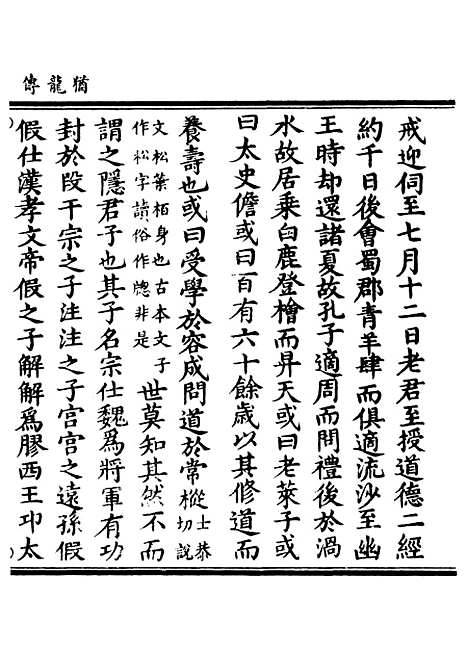 猶龍傳
戒迎伺至七月十二日老君至授道德二經
約千日後會蜀郡青羊肆而俱適流沙至幽
王時却還諸夏故孔子適周而問禮後於渦
水故居乘白鹿登檜而昇天或曰老萊子或
曰太史儋或曰百有六十餘歲以其修道而
養壽也或曰受學於容成問道於常樅士恭切說
文松葉栢身也古本文子作松字讀俗作牎非是世莫知其然不而
謂之隱君子也其子名宗仕魏為將軍有功
封於段干宗之子注注之子宫宫之遠孫假
假仕漢孝文帝假之子解解為膠西王卭太